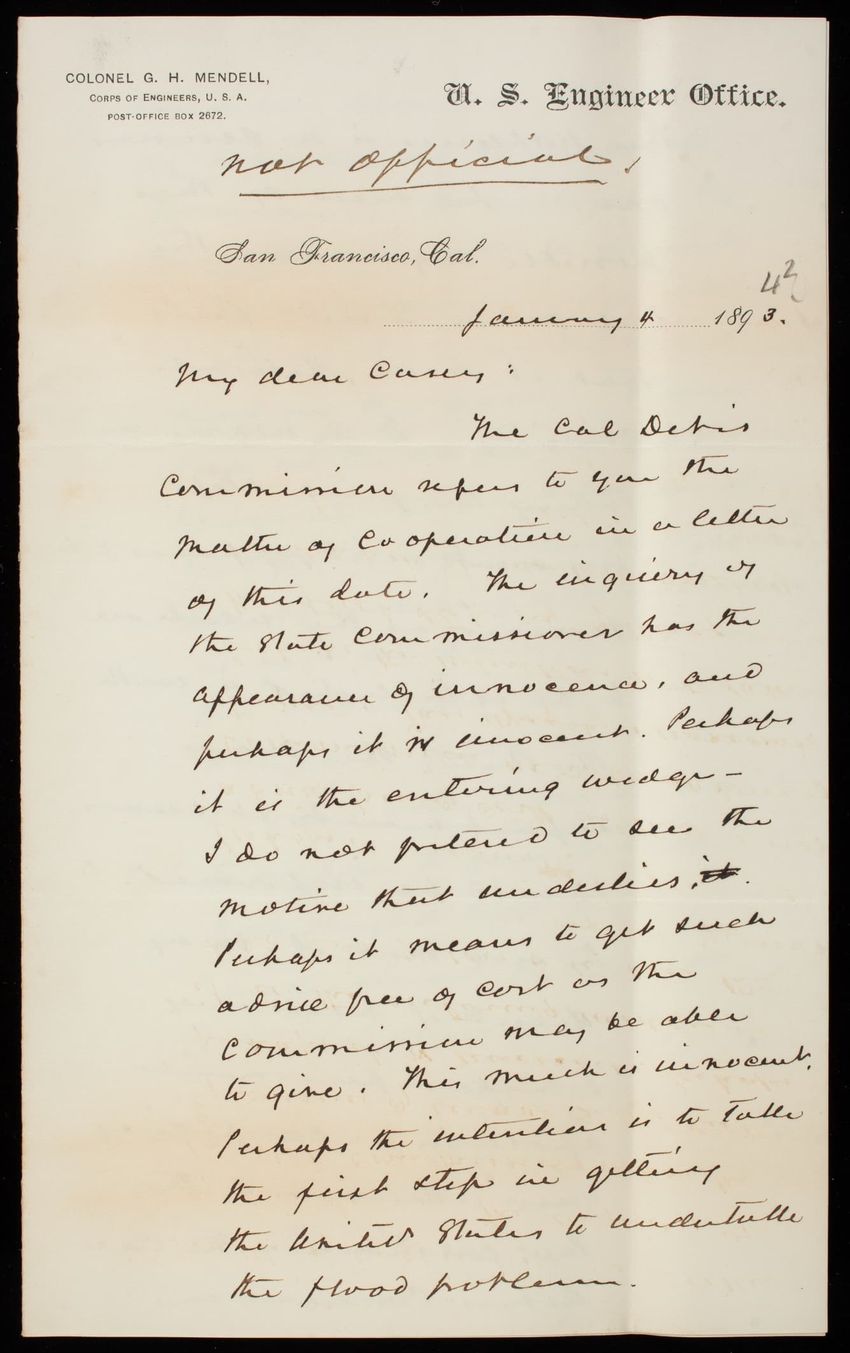 COLONEL G. H. MENDELL,
CORPS OF ENGINEERS, U. S. A.
POST-OFFICE BOX 2672.
U. S. Engineer Office.
not official.
San Francisco, Cal.
42
January 4 1893.
My dear Casey:
The Cal Debris
Commission refers to you the
matter of Cooperation in a letter
of this date. The inquiry of
the State Commissioner has the
appearance of innocence, and
perhaps it is innocent. Perhaps
it is the entering wedge —
I do not pretend to see the
motive that underlies it.
Perhaps it means to get such
advice free of cost as the
Commission may be able
to give. This much is innocent.
Perhaps the intention is to take
the first step in getting
the United States to undertake
the flood problem.